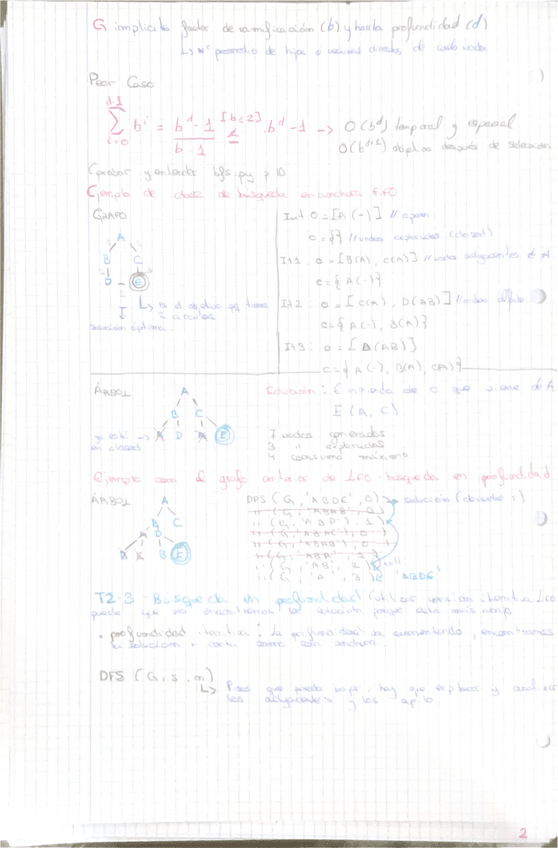 G implícito factor de ramificación (b) y hasta profundidad (d)
↳ Nº promedio de hijos o vecinos directos de cada nodo
Peor Caso
d-1
∑ bⁱ = b^d - 1 / b - 1 [b≤2] ≤ b^d - 1 → O(b^d) temporal y espacial
i=0
O(b^(d+1)) objetivo después de selección
(probar y entender bfs.py p 10
Ejemplo de clase de búsqueda en anchura FIFO
GRAFO
A
B C
D E
↳ Es el objetivo
solución óptima
Init O = [A (-)] // open
C = {} // nodos explorados (closed)
It 1: O = [B(A), C(A)] // nodos adyacentes a A
C = { A(-)}
It 2: O = [C(A), D(AB)] // orden
C = { A(-), B(A)}
It 3: O = [D(AB)]
C = { A(-), B(A), C(A)}
ÁRBOL
A
B C
ya está en closed → A D A E
Solución: E de C que viene de A
E (A, C)
7 nodos generados
3 " explorados
4 consumo máximo
Ejemplo con el grafo anterior de LIFO - búsqueda en profundidad
ÁRBOL
A
B C
A D
B E
DFS (G, 'ABDE', 0) → solución
" (G, 'ABDB', 0)
" (G, 'ABD', 1)
" (G, 'ABAC', 0
" (G, 'ABAB', 0
" (G, 'ABA', 1)
" (G, 'AB', 2)
" (G, 'A', 3) 'ABDE'
T2-8 - Búsqueda en profundidad (utilizar versión iterativa LIFO
puede que no encontremos la solución porque está más abajo
• profundidad iterativa: la profundidad va aumentando, encontramos
la solución + corta como con anchura.
DFS (G, s, m)
↳ Pisos que puedo bajar, hay que explorar y
los adyacentes y los apilo
2